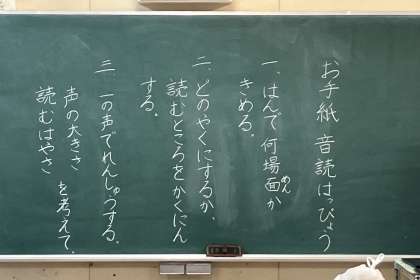 お手紙 音読はっぴょう
一、はんで何場面(めん)か
きめる。
二、どのやくにするか、
読むところをかくにん
する。
三、一の声でれんしゅうする。
声の大きさ
読むはやさ
を考えて、